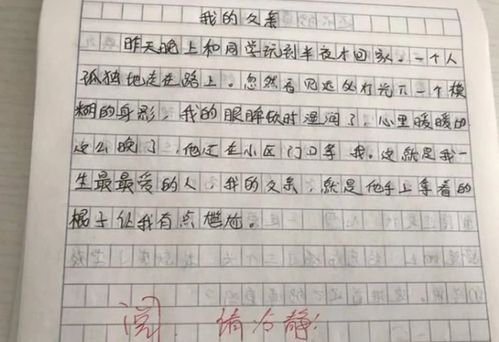 我的父亲
昨天晚上和同学玩到半夜才回家。一个人
孤独地走在路上。忽然看见远处灯光下一个模
糊的身影，我的眼眸顿时湿润了，心里暖暖的
这么晚了，他还在小区门卫等我。这就是我一
生最最爱的人，我的父亲，就是他手上拿着的
棍子让我有点尴尬。
阅，请冷静！